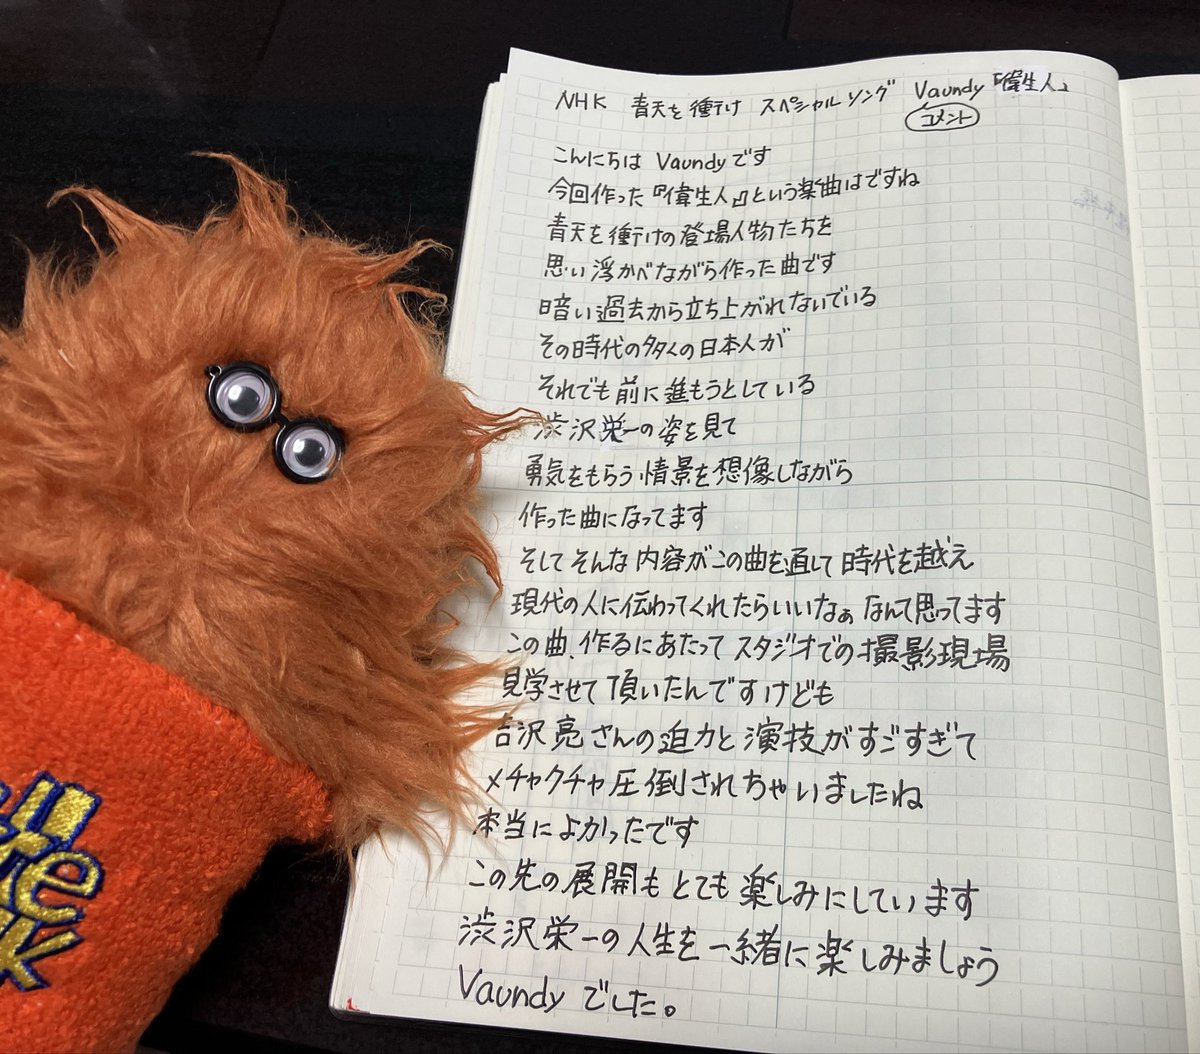 NHK 青天を衝け スペシャルソング Vaundy「偉生人」
コメント
こんにちは Vaundyです
今回作った『偉生人』という楽曲はですね
青天を衝けの登場人物たちを
思い浮かべながら作った曲です
暗い過去から立ち上がれないでいる
その時代の多くの日本人が
それでも前に進もうとしている
渋沢栄一の姿を見て
勇気をもらう情景を想像しながら
作った曲になってます
そしてそんな内容がこの曲を通して時代を越え
現代の人に伝わってくれたらいいなぁ なんて思ってます
この曲、作るにあたって スタジオでの撮影現場
見学させて頂いたんですけども
吉沢亮さんの迫力と演技がすごすぎて
メチャクチャ圧倒されちゃいましたね
本当によかったです
この先の展開もとても楽しみにしています
渋沢栄一の人生を一緒に楽しみましょう
Vaundyでした。